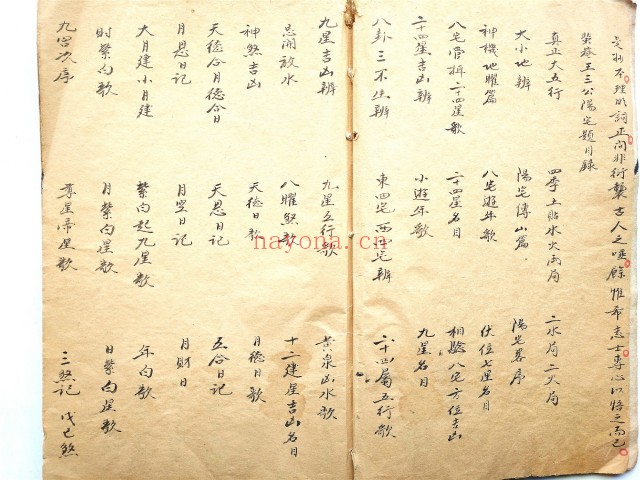 文抄不理明詞正向非衍襲古人之唾餘惟希志士專心以悟之而已
王三公陽宅題目錄
真正大五行 四季土貼水火両局 二水局二火局
大小地辨 陽宅傳山篇 陽宅畧序
神機地曜篇 八宅遊年歌 伏位七星名目
八宅管轄二十四星歌 二十四星名目 相騐八宅方位吉凶
二十四星吉凶辨 小遊年歌 九星名目
八卦三不生辨 東四宅西四宅辨 二十四属五行歌
九星吉凶辨 九星五行歌 黄泉凶水歌
忌開放水 八曜煞歌 十二建星吉凶名目
神煞吉凶 天德日歌 月德日歌
天德合月德合日 天恩日記 五合日記
月恩日記 月空日記 月財日
大月建小月建 紫白起九星歌 年白歌
時紫白歌 月紫白星歌 日紫白星歌
九宮次序 尊星帝星歌 三煞記 戊己煞
nayona.cn